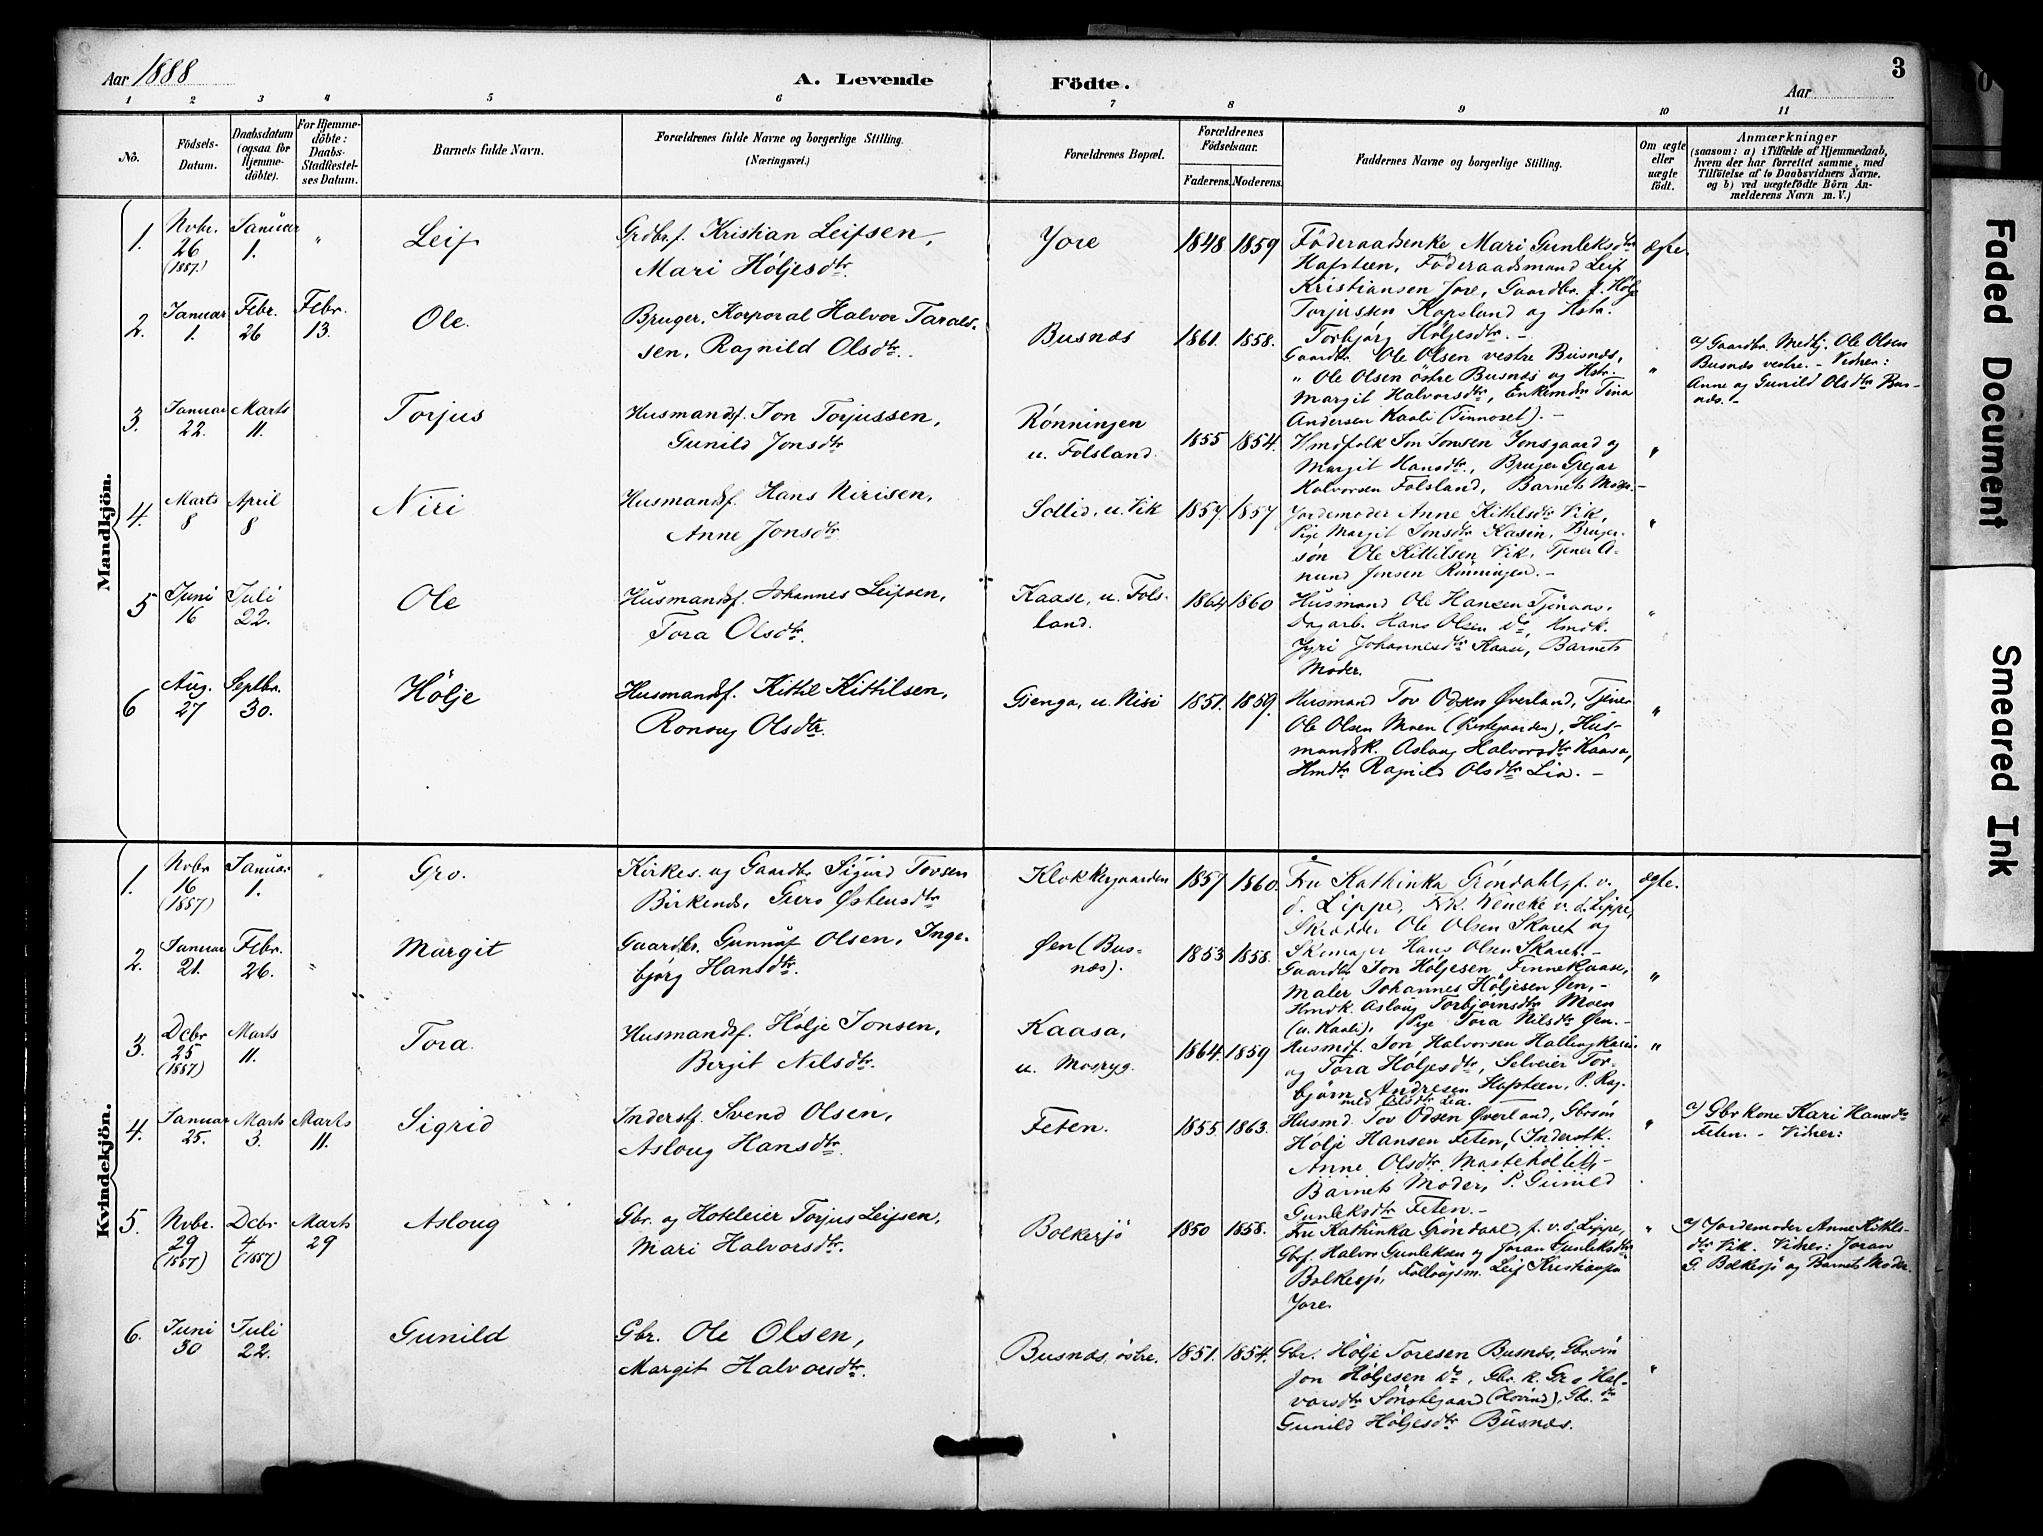 Aar 1888
A. Levende Födte.
Aar
3
1 2 3 4 5 6 7 8 9 10 11
No.
Födsels-
Datum.
Daabsdatum
(ogsaa for
Hjemme-
döbte).
For Hjemme-
döbte:
Daabs-
Stadfæstel-
ses Datum.
Barnets fulde Navn.
Forældrenes fulde Navne og borgerlige Stilling.
(Næringsvei.)
Forældrenes Bopæl.
Forældrenes
Födselsaar.
Faderens. Moderens.
Faddernes Navne og borgerlige Stilling.
Om ægte
eller
uægte
födt.
Anmærkninger
(saasom: a) i Tilfælde af Hjemmedaab,
hvem der har forrettet samme, med
Tilföielse af to Daabsvidners Navne.
og b) ved uægtefödte Börn An-
melderens Navn m.V.)
Mandkjön.
1.
Novbr.
26
(1887)
Januar
1.
"
Leif
Grdbrf. Kristian Leifsen,
Mari Höljesdtr.
Jore
1848 1859
Föderaadsenke Mari Gunleksdtr
Hafsteen, Föderaadsmand Leif
Kristiansen Jore, Gaardbr. f. Hölje
Torjussen Kopsland og Hstr.
Torbjørg Höljesdtr. -
ægte.
2.
Januar
1.
Febr.
26
Febr.
13.
Ole.
Bruger, Korporal Halvor Tarals-
sen, Ragnild Olsdtr.
Busnæs
1861. 1858.
Gaardbr. Ole Olsen vestre Busnæs,
" Ole Olsen östre Busnæs og Hstr.
Margit Halvorsdtr, Enkemdn Tina
Andersen Kaali (Tinnoset). -
"
a) Gaardbr. Medhj. Ole Olsen
Busnæs vestre. - Vidner:
Anne og Gunild Olsdtr Bus-
næs. -
3.
Januar
22.
Marts
11.
Torjus
Husmandsf. Jon Torjussen,
Gunild Jonsdtr
Rønningen
u. Folsland.
1855 1854.
Hmdfolk Jon Jonsen Jonsgaard og
Margit Hansdtr., Bruger Gregar
Halvorsen Folsland, Barnets Moder. -
"
4.
Marts
8
April
8
Niri
Husmandsf. Hans Nirisen,
Anne Jonsdtr.
Sollid, u. Vik
1857. 1857
Jordemoder Anne Kittilsdtr Vik,
Pige Margit Jonsdtr Kasin, Bruger-
søn Ole Kittilsen Vik, Tjener A-
nund Jonsen Rönningen. -
"
5
Juni
16
Juli
22.
Ole
Husmandsf. Johannes Leifsen,
Tora Olsdtr.
Kaase, u. Fols-
land.
1864 1860
Husmand Ole Hansen Tjönaas,
Dagarb. Hans Olsen Do, Hmdk.
Jyri Johannesdtr Kaase, Barnets
Moder.
"
6
Aug.
27
Septbr.
30.
Hölje
Husmandsf. Kittil Kittilsen,
Ronaug Olsdtr.
Gjenga, u. Nisi
1851. 1859.
Husmand Tov Odsen Øverland, Tjener
Ole Olsen Moen (Prestegaarden), Hus-
mandsk. Aslaug Halvorsdtr Kaasa,
Hmdtr Ragnild Olsdtr Lia. -
"
Kvindekjön.
1.
Novbr
16
(1887)
Januar
1.
"
Gro.
Kirkes. og Gaardbr Sigurd Tovsen
Birkenes, Guro Østensdtr
Klokkergaarden
1857 1860.
Fru Kathinka Grøndahl, f. v.
d. Lippe, Frk. Wencke v. d. Lippe,
Skrædder Ole Olsen Skaret og
Skomager Hans Olsen Skaret. -
ægte.
2.
Januar
21.
Febr.
26.
"
Margit
Gaardbr. Gunnuf Olsen, Inge-
bjørg Hansdtr.
Øen (Bus-
næs).
1853 1858.
Gaardbr Jon Höljesen Finnekaase,
Maler Johannes Höljesen Øen, -
Hmdk. Aslaug Torbjørnsdtr Moen
(u. Kaali), Pige Tora Nilsdtr Øen. -
"
3.
Dcbr
25
(1887)
Marts
11.
Tora.
Husmandsf. Hölje Jonsen,
Birgit Nilsdtr.
Kaasa,
u. Mosryg.
1864. 1859
Husmdf. Jon Halvorsen
og Tora Höljesdtr, Selveier Tor-
bjørn Andresen Hafsteen, P. Rag-
nild Olsdtr Lia.
"
4.
Januar
25.
Marts
3.
Marts
11.
Sigrid
Inderstf. Svend Olsen,
Asloug Hansdtr.
Feten.
1855. 1863.
Husmd. Tov Odsen Øverland, Gbrsön
Hölje Hansen Feten, (Inderstk.
Anne Olsdtr -
Barnets Moder, P. Gunild
Gunleksdtr Feten. -
"
a) Gbrkone Kari Hansdtr
Feten. - Vidner:
5.
Novbr.
29
(1887)
Dcbr
4
(1887)
Marts
29
Asloug
Gbr. og Hoteleier Torjus Leifsen,
Mari Halvorsdtr.
Bolkesjö
1850 1858.
Fru Kathinka Grøndahl, f. v. d. Lippe,
Gbf. Halvor Gunleksen og Joran Gunleksdtr
Bolkesjö, Leif Kristiansen
Jore.
"
a) Jordemoder Anne Kittils-
dtr Vik. Vidner: Joran
G. Bolkesjö og Barnets Moder.
6.
Juni
30
Juli
22.
Gunild
Gbr. Ole Olsen,
Margit Halvorsdtr.
Busnæs, östre.
1851. 1854.
Gbr. Hölje Toresen Busnæs, Gbrsön
Jon Höljesen Do, Gbr. k. Gro Hal-
vorsdtr Sønstegaard (Hovind), Gbr. dtr
Gunild Höljesdtr Busnæs.
"
Faded Document
Smeared Ink